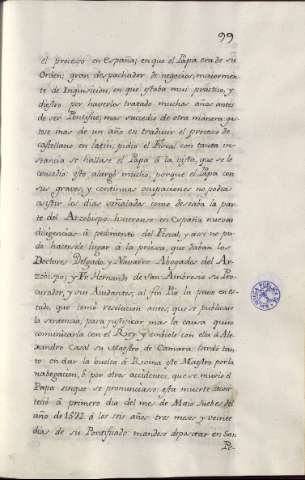 99
el proceso en España; en que el Papa era de su
Orden; gran despachador de negocios, maiormen
te de Inquisicion, en que estaba mui practico, y
diestro por haverlos tratado muchos años antes
de ser Pontifice; mas sucedio de otra manera gas
tose mas de un año en traducir el proceso de
castellano en latin, pidio el Fiscal con tanta in
stancia se hallase el Papa á la vista, que se le
concedio esto alargó mucho, porque el Papa con
sus graves, y continuas ocupaciones no podia
asistir los dias señalados como deseaba la par
te del Arzobispo hicieronse en España nuevas
diligencias á pedimento del Fiscal, y asi no pu
do hacerse lugar á la priesa, que daban los
Doctores Delgado, y Navarro Abogados del Ar
zobispo; y Fr. Hernando de San Ambrosio su Pro
curador, y sus Ayudantes; al fin Pio la puso en es
tado, que tomó resolucion antes, que se publicase
la sentencia, para justificar mas la causa quiso
comunicarla con el Rey y embiole con ella á Ale
xandro Casal su Maestro de Camara: tardó tan
to en dar la buelta á Roma este Maestro por la
nabegacion, ó por otros accidentes, que se murió el
Papa sin que se pronunciase; esta muerte acon
teció á primero dia del mes de Maio Jueves del
año de 1572 á los seis años tres meses y veinte
dias de su Pontificado: mandose depositar en San
Pe-